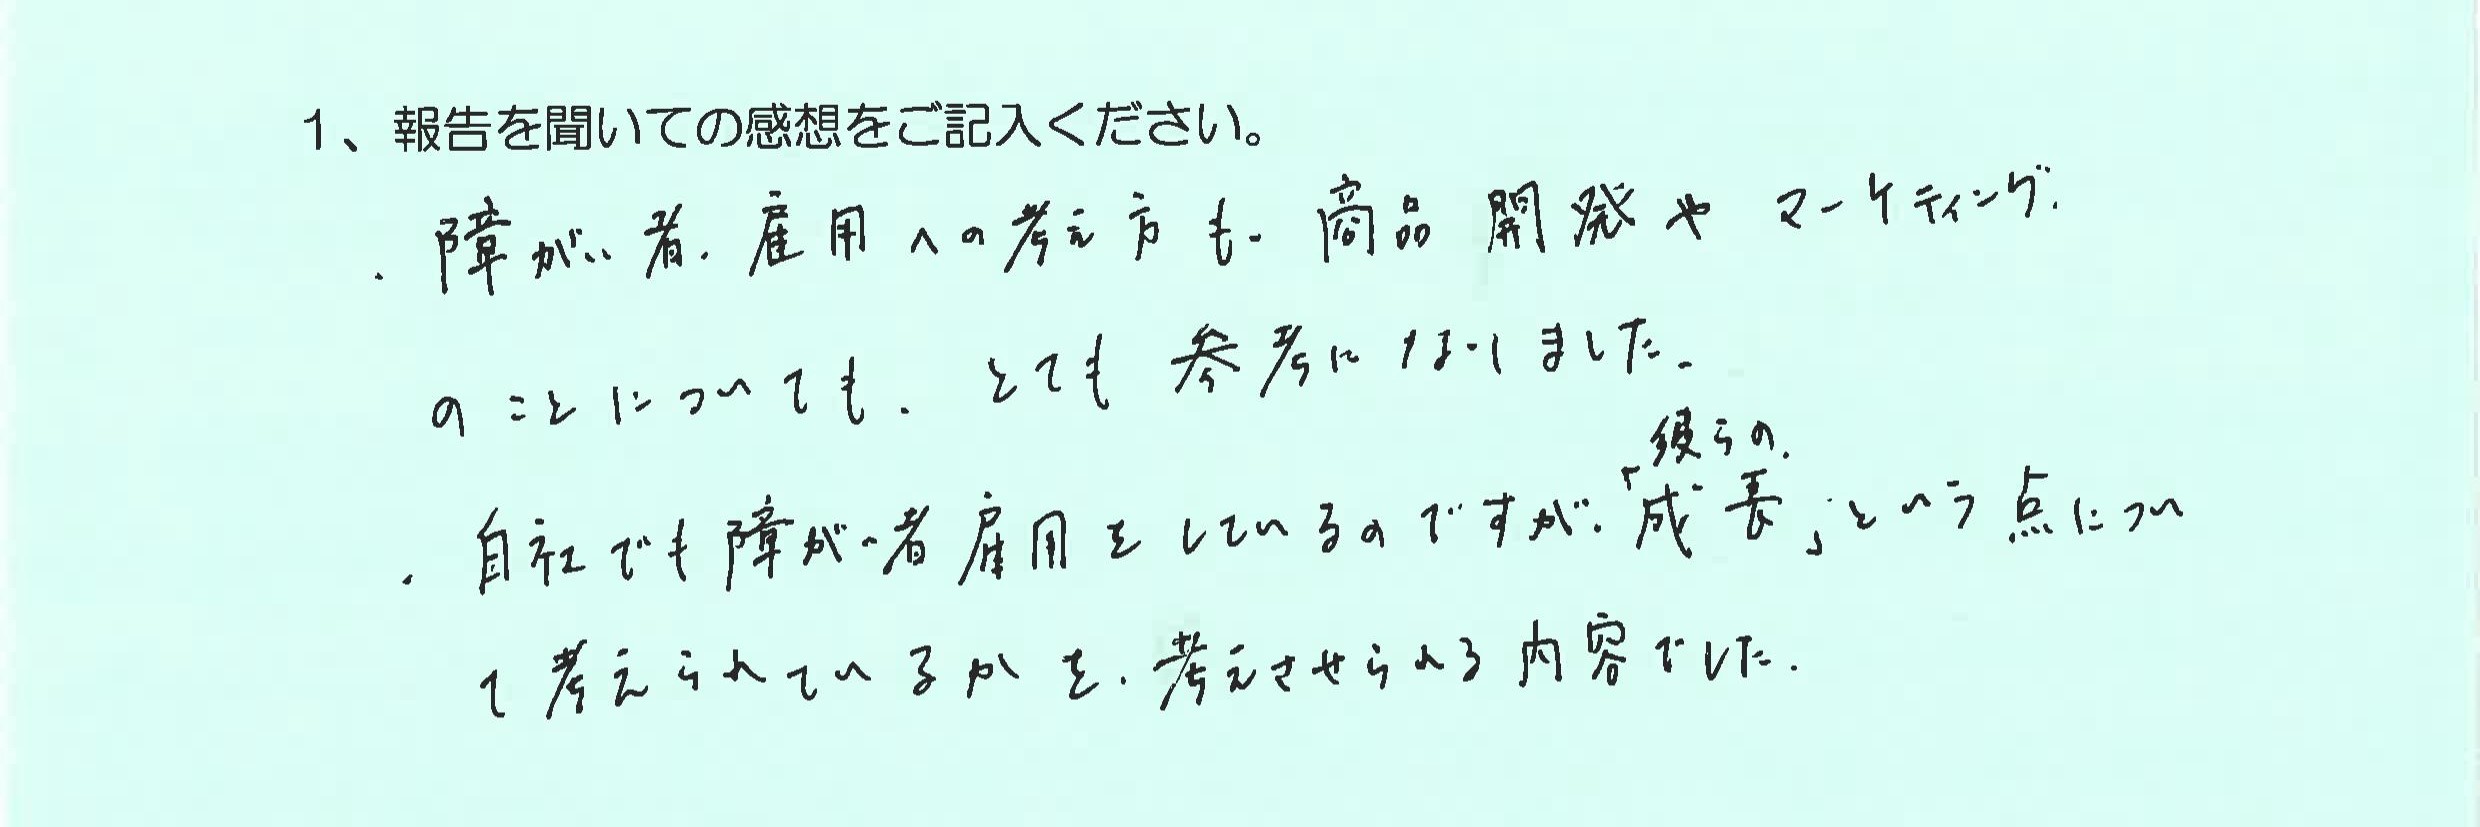 1、報告を聞いての感想をご記入ください。
・障がい者、雇用への考え方も、商品開発やマーケティング、
のことについても、とても参考になりました。
彼らの
・自社でも障がい者雇用をしているのですが、「成長」という点につい
て考えられているかを、考えさせられる内容でした。